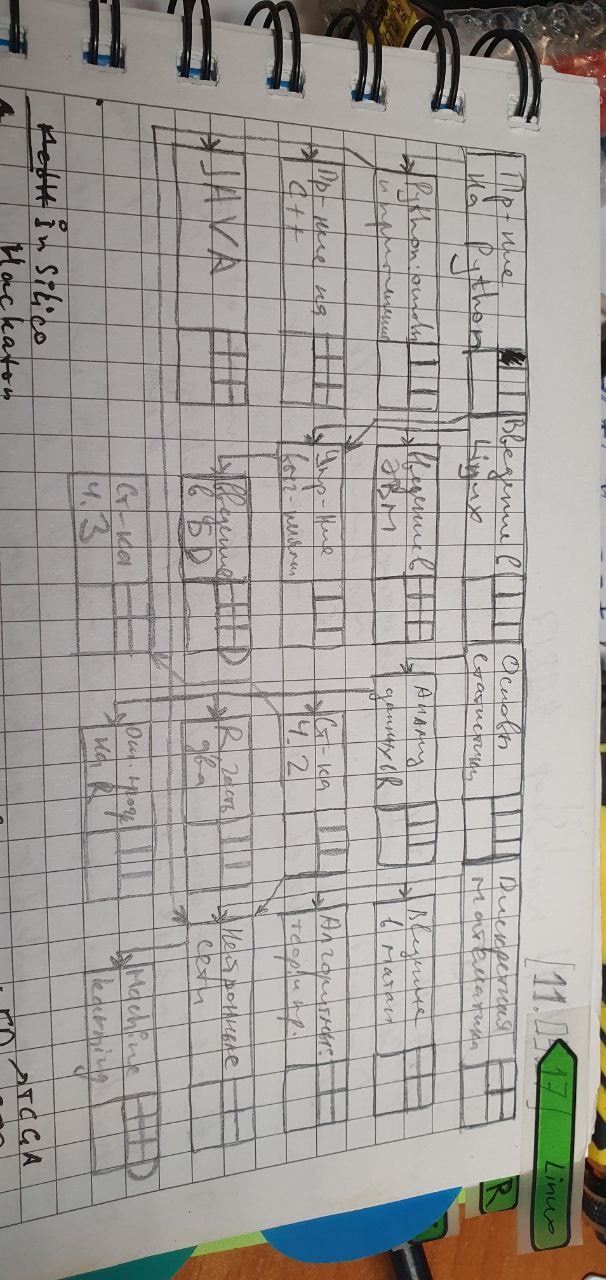 [11.09.17]
Linux
R
Пр-ние
на Python
Введение в
Linux
Основы
статистики
Дискретная
математика
Python: основы
и применение
Введение в
ЭВМ
Анализ
данных в R
Введение
в матан
Пр-ние на
C++
Упр-ние
выч-лениями
Ст-ка
ч.2
Алгоритмы:
теор. и пр.
JAVA
Введение
в БД
R часть
два
Нейронные
сети
Ст-ка
ч.3
Осн. прогр.
на R
Machine
learning
in silico
Hackaton
→TCGA